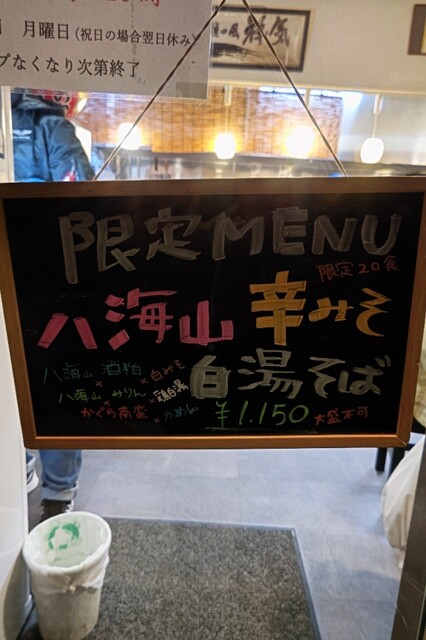 月曜日（祝日の場合翌日休み）
プなくなり次第終了
限定MENU
限定20食
八海山 辛みそ
白湯そば
八海山 酒粕 × 白みそ
八海山 みりん × 鶏白湯
かぐら南蛮 × 太めん
¥1.150 大盛不可